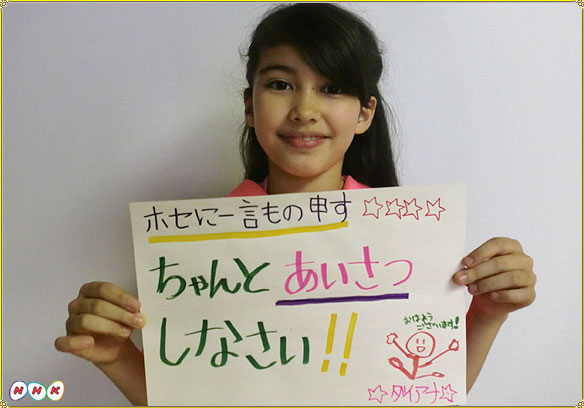 ホセに一言もの申す ☆☆☆☆
ちゃんと あいさつ
しなさい!!
おはよう
ございます!
☆ダイアナ☆
NHK